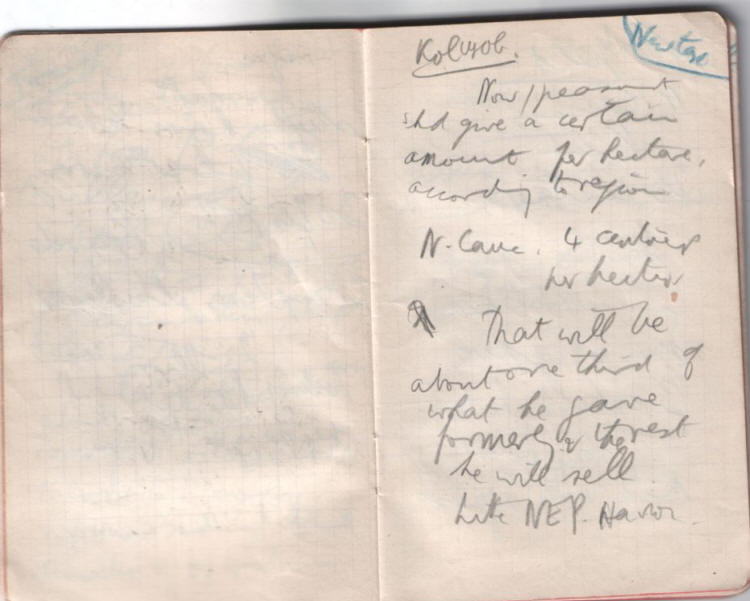 New tax
Kolkhoz.
Now, peasant
shd give a certain
amount per hectare,
according to region
N. Cauc. 4 centners
per hectare
That will be
about one third of
what he gave
formerly & the rest
he will sell.
Like NEP.